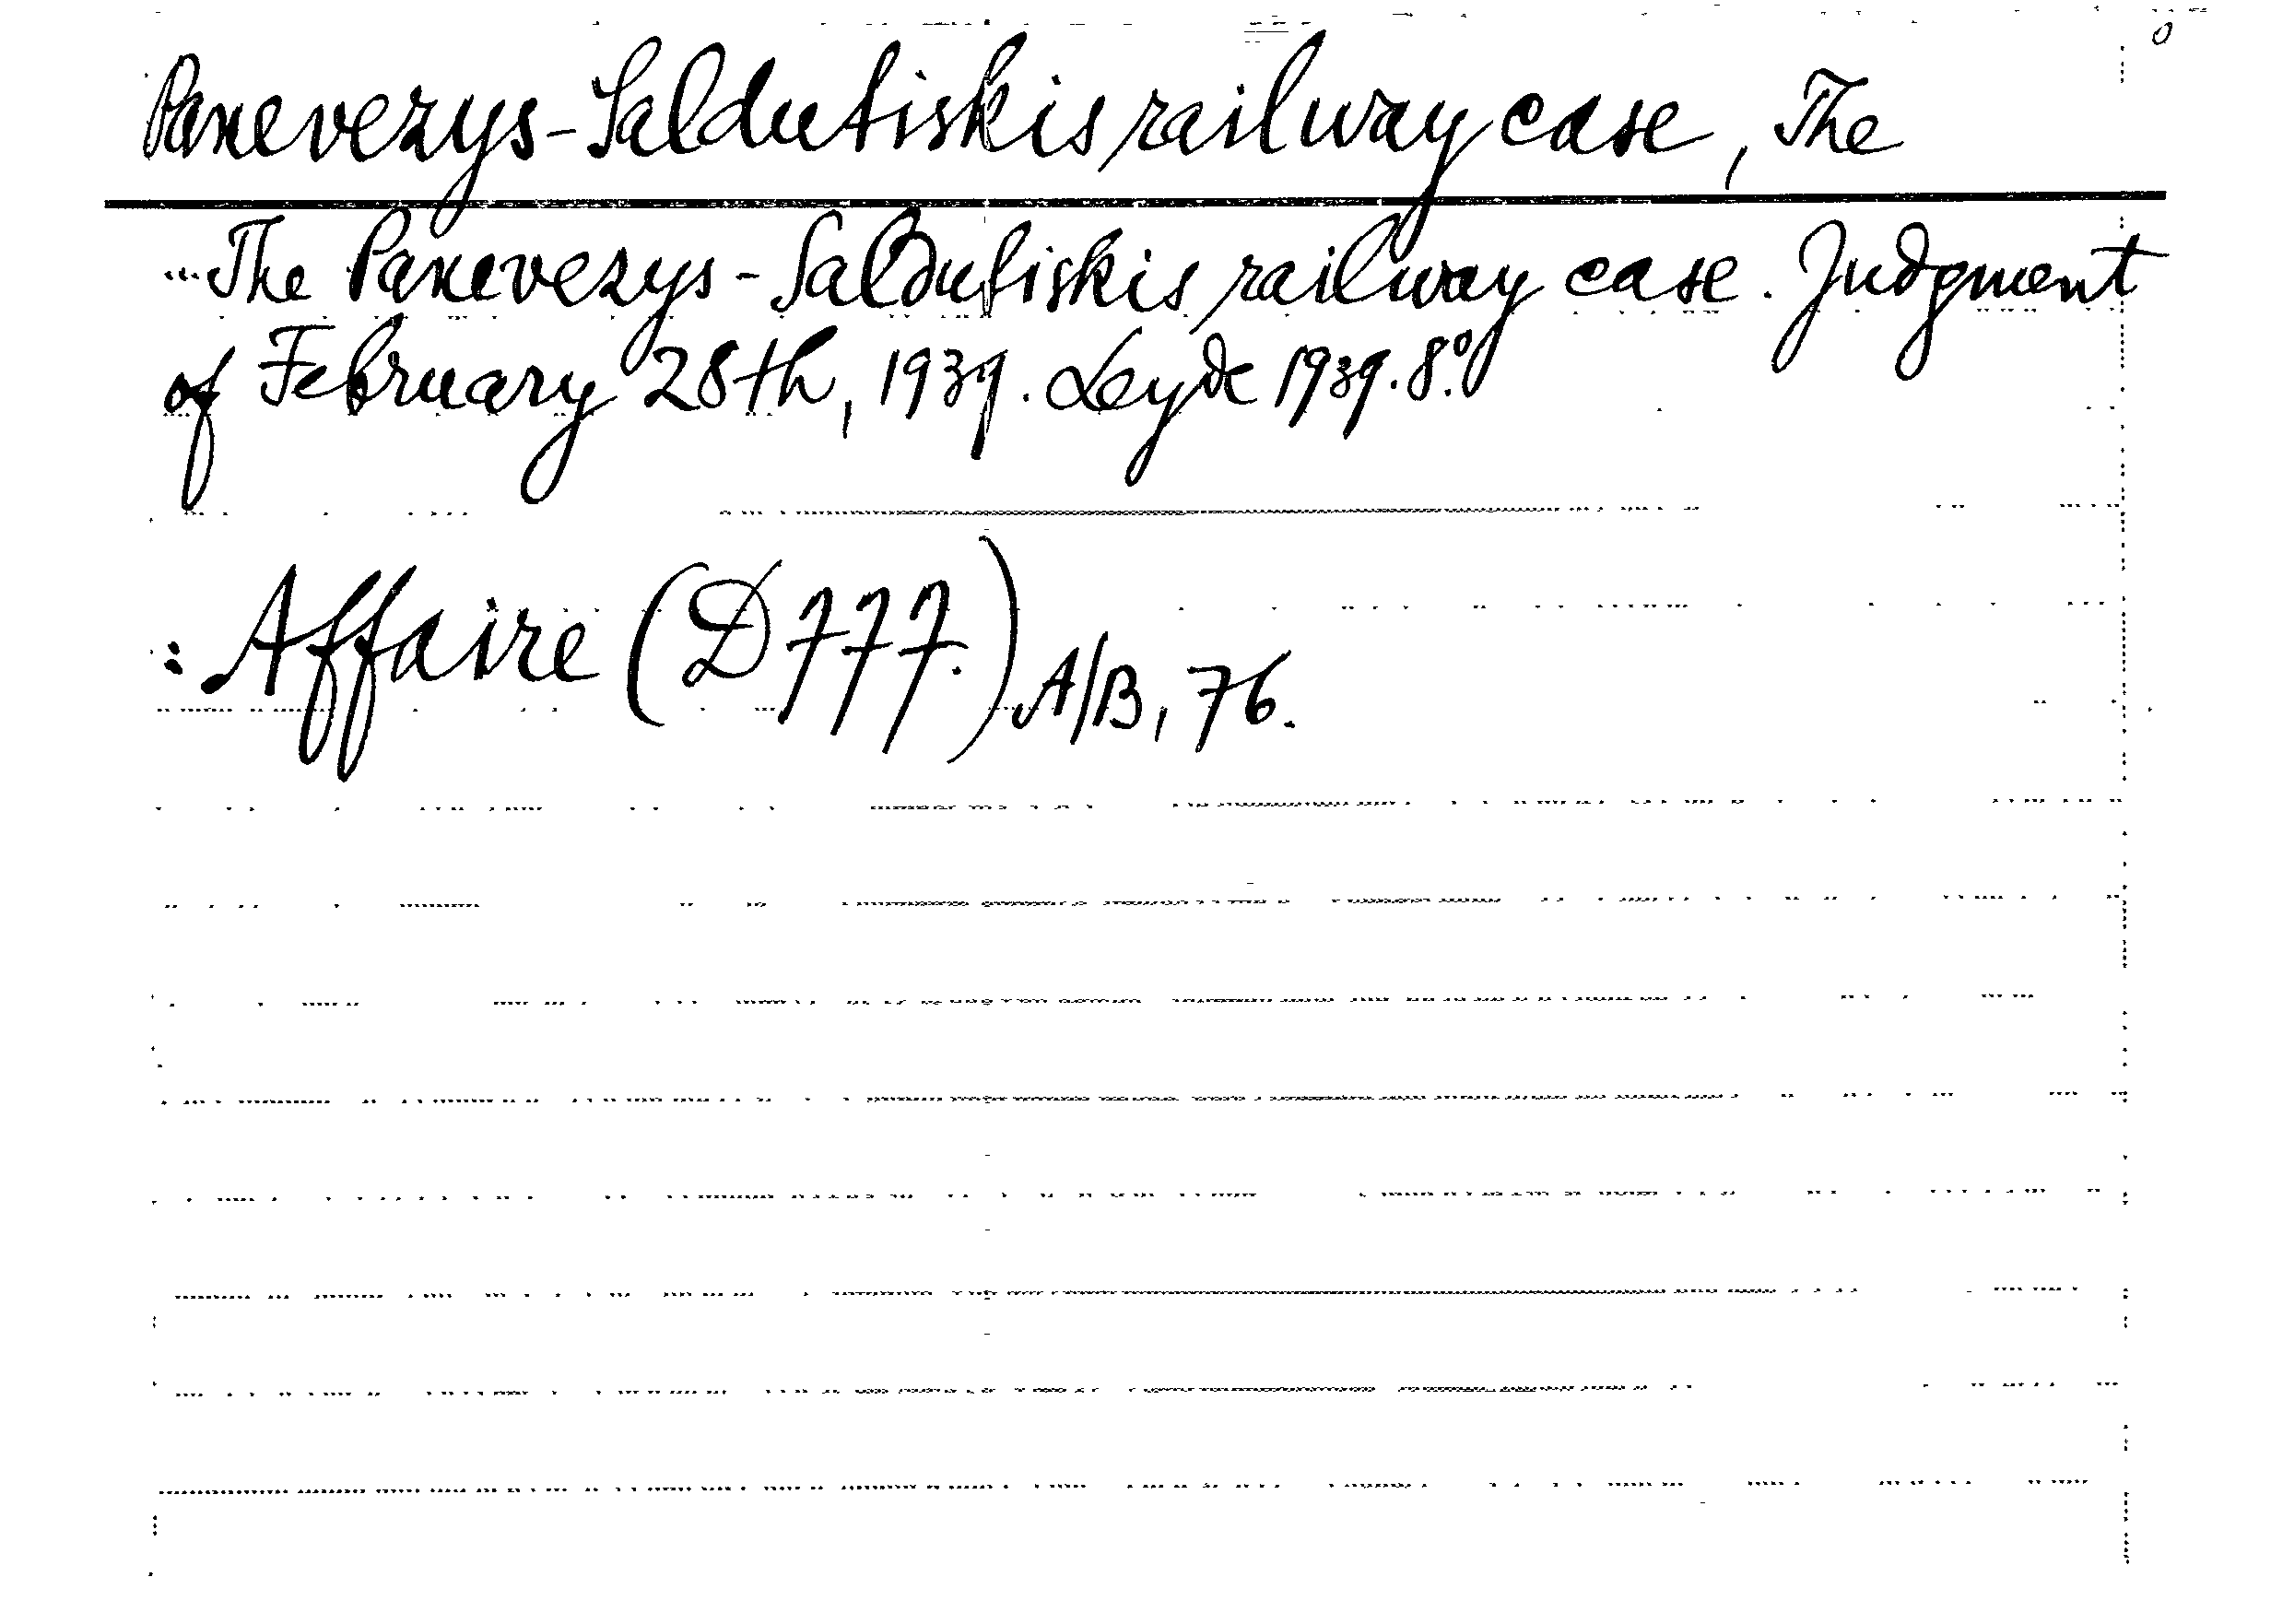 Panevezys-Saldutiskis railway case, The
The Panevezys-Saldutiskis railway case. Judgment
of February 28th, 1939. Leyde 1939. 8º.
: Affaire (D 777.) A/B, 76.